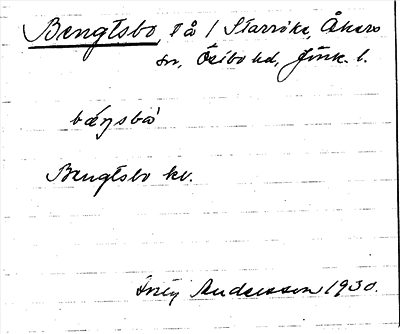 Bengtsbo, på 1 Starrike, Åkers
sn, Östbo hd, Jönk. l.
bæŋsbo
Bengtsbo kv.
Andersson 1930.